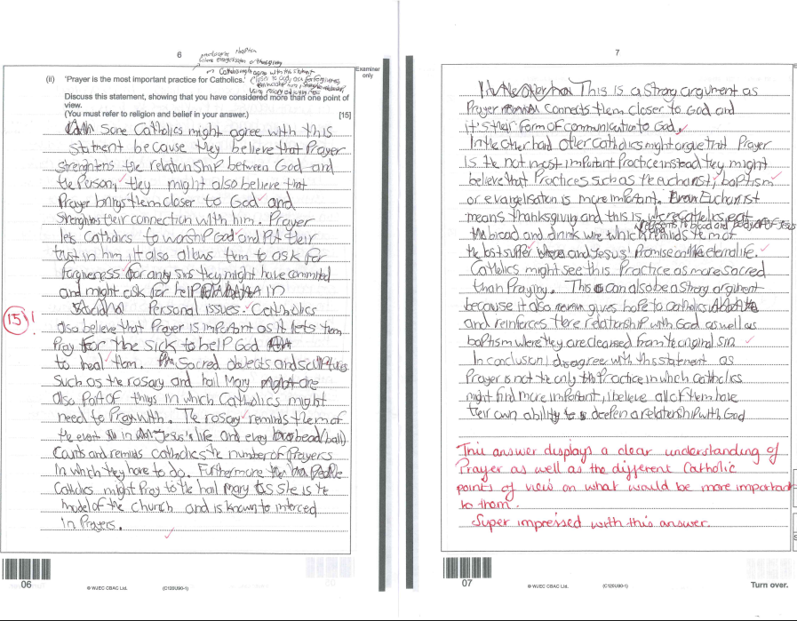 6
Examiner
only
(ii) 'Prayer is the most important practice for Catholics.'
Discuss this statement, showing that you have considered more than one point of
view.
(You must refer to religion and belief in your answer.) [15]
Some Catholics might agree with this
statment because they believe that Prayer
strenghtens the relationship between God and
the Person, they might also believe that
Prayer brings them closer to God and
strenghtens their connection with him. Prayer
lets Catholics to worship God and Put their
trust in him, it also allows them to ask for
forgiveness for any sins they might have commited
and might ask for help in
Personal issues. Catholics
also believe that Prayer is important as it lets them
Pray for the sick to help God
to heal them. Sacred objects and sculptures
such as the rosary and hail Mary are
also Part of things in which Catholics might
need to Pray with. The rosary reminds them of
the event in Jesus's life and every bead (ball)
Counts and reminds catholics the number of Prayers
in which they have to do. Furthermore
Catholics might Pray to the hail Mary as she is the
model of the church and is known to interced
in Prayers.
15
06
© WJEC CBAC Ltd.
(C120U90-1)
7
This is a strong argument as
Prayer connects them closer to God and
it's their form of communication to God.
In the other hand other catholics might argue that Prayer
is the not most important Practice instead they might
believe that Practices such as the eucharist, baptism
or evangelisation is more important. Eucharist
means thanksgiving and this is where catholics eat
the bread and drink wine which reminds them of
the last suffer and Jesus' Promise on the eternal life.
Catholics might see this Practice as more sacred
than Praying. This can also be a strong argument
because it also gives hope to catholics
and reinforces there relationship with God as well as
baptism where they are cleansed from the original sin.
In conclusion i disagree with this statement as
Prayer is not the only Practice in which catholics
might find more important, i believe all of them have
their own ability to deepen a relationship with God
This answer displays a clear understanding of
Prayer as well as the different Catholic
points of view on what would be more important
to them.
Super impressed with this answer.
07
© WJEC CBAC Ltd.
(C120U90-1)
Turn over.